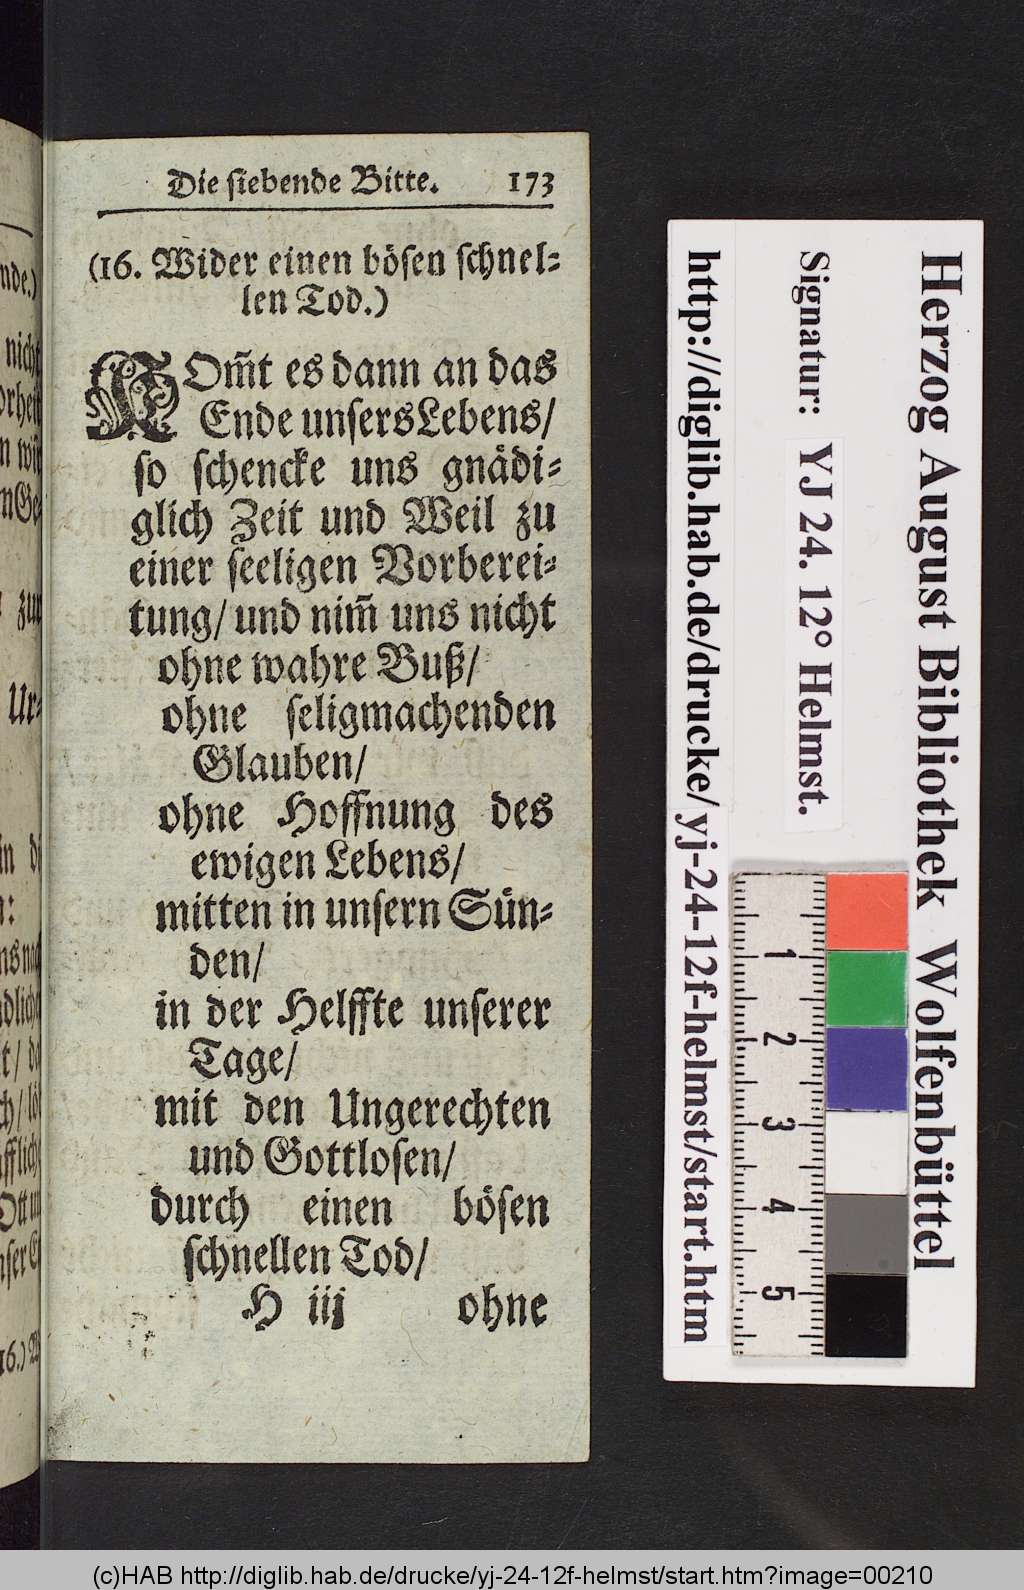 Die siebende Bitte. 173
(16. Wider einen bösen schnel⸗
len Tod.)
KOm̃t es dann an das
Ende unsers Lebens/
so schencke uns gnädi⸗
glich Zeit und Weil zu
einer seeligen Vorberei⸗
tung/ und nim̃ uns nicht
ohne wahre Buß/
ohne seligmachenden
Glauben/
ohne Hoffnung des
ewigen Lebens/
mitten in unsern Sün⸗
den/
in der Helffte unserer
Tage/
mit den Ungerechten
und Gottlosen/
durch einen bösen
schnellen Tod/
H iij ohne
Herzog August Bibliothek Wolfenbüttel
Signatur: YJ 24. 12° Helmst.
http://diglib.hab.de/drucke/yj-24-12f-helmst/start.htm
1 2 3 4 5
(c)HAB http://diglib.hab.de/drucke/yj-24-12f-helmst/start.htm?image=00210